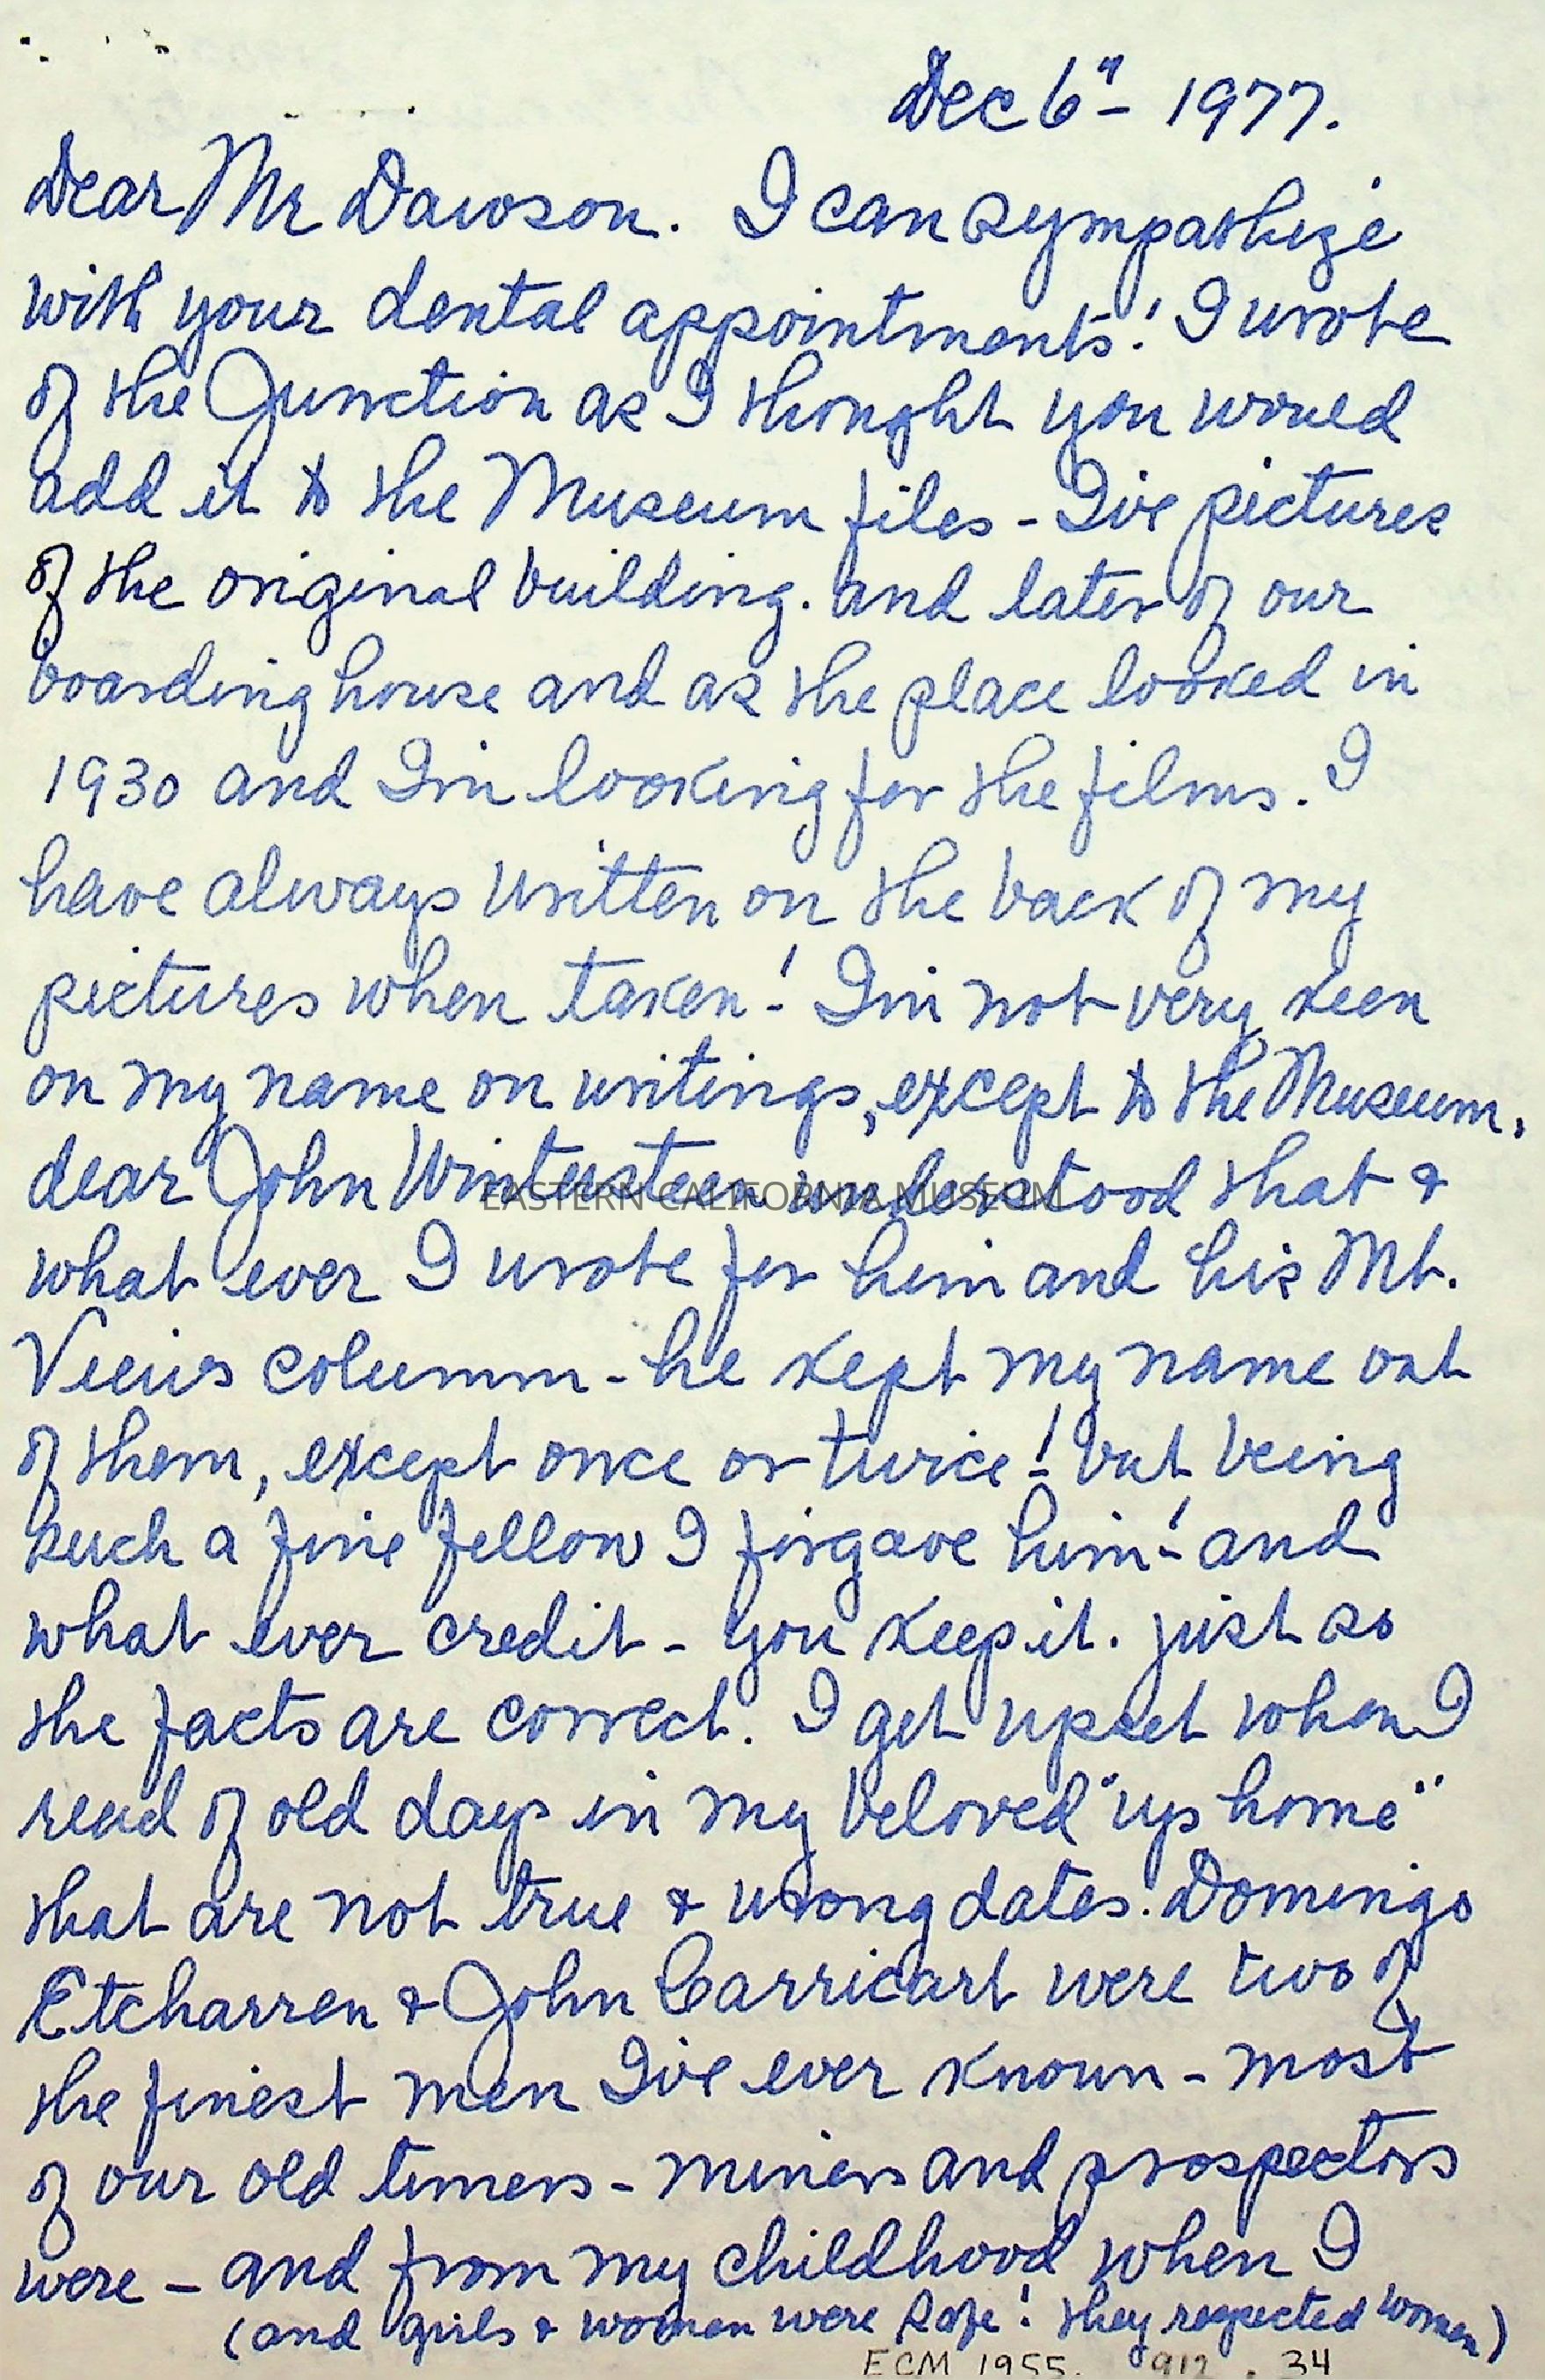 Dec 6" - 1977.
Dear Mr Dawson. I can sympathize
with your dental appointments! I wrote
of the Junction as I thought you would
add it to the Museum files - I've pictures
of the original building. and later of our
boarding house and as the place looked in
1930 and I'm looking for the films. I
have always written on the back of my
pictures when taken! I'm not very keen
on my name on writings, except to the Museum.
dear John Wintersteen understood that &
EASTERN CALIFORNIA MUSEUM
what ever I wrote for him and his Mt.
Views column - he kept my name out
of them, except once or twice! but being
such a fine fellow I forgave him! and
what ever credit - you keep it. just so
the facts are correct. I get upset when I
read of old days in my beloved "up home"
that are not true & wrong dates. Domingo
Etcharren & John Carricart were two of
the finest men I've ever known - most
of our old timers - miners and prospectors
were - and from my childhood when I
(and girls & women were safe! they respected women)
ECM 1955. 912 . 34